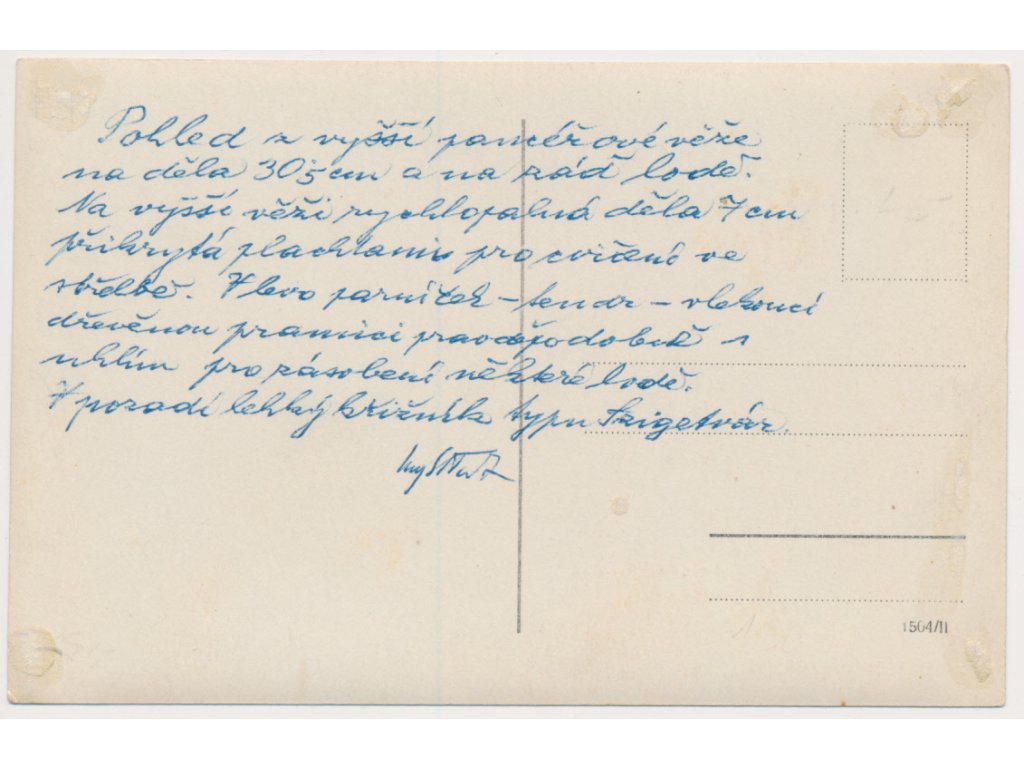 Pohled z vyšší pancéřové věže
na děla 30,5 cm a na záď lodě.
Na vyšší věži rychlopalná děla 7 cm
přikrytá plachtami pro cvičení ve
střelbě. Vlevo parníček – tendr – vlekoucí
dřevěnou pramici pravděpodobně s
uhlím pro zásobení některé lodě.
V pozadí lehký křižník typu Szigetvár.
1504/II